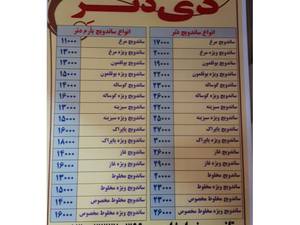 دی دنر
انواع ساندویچ دنر
انواع ساندویچ یارم دنر
ساندویچ مرغ ۱۷۰۰۰ ساندویچ مرغ ۱۱۰۰۰
ساندویچ ویژه مرغ ۲۰۰۰۰ ساندویچ ویژه مرغ ۱۳۰۰۰
ساندویچ بوقلمون ۱۹۰۰۰ ساندویچ بوقلمون ۱۳۰۰۰
ساندویچ ویژه بوقلمون ۲۲۰۰۰ ساندویچ ویژه بوقلمون ۱۵۰۰۰
ساندویچ گوساله ۲۳۰۰۰ ساندویچ گوساله ۱۴۰۰۰
ساندویچ ویژه گوساله ۲۶۰۰۰ ساندویچ ویژه گوساله ۱۶۰۰۰
ساندویچ سبزینه ۲۲۰۰۰ ساندویچ سبزینه ۱۳۰۰۰
ساندویچ ویژه سبزینه ۲۵۰۰۰ ساندویچ ویژه سبزینه ۱۵۰۰۰
ساندویچ باپراک ساندویچ باپراک ۱۶۰۰۰
ساندویچ ویژه باپراک ۳۰۰۰۰ ساندویچ ویژه باپراک ۱۸۰۰۰
ساندویچ غاز ۲۶۰۰۰ ساندویچ غاز ۱۴۰۰۰
ساندویچ ویژه غاز ۲۹۰۰۰ ساندویچ ویژه غاز ۱۶۰۰۰
ساندویچ مخلوط ۲۰۰۰۰ ساندویچ مخلوط ۱۳۰۰۰
ساندویچ ویژه مخلوط ۲۳۰۰۰ ساندویچ ویژه مخلوط ۱۵۰۰۰
ساندویچ مخلوط مخصوص ۲۳۰۰۰ ساندویچ مخلوط مخصوص ۱۴۰۰۰
ساندویچ ویژه مخلوط مخصوص ۲۶۰۰۰ ساندویچ ویژه مخلوط مخصوص ۱۶۰۰۰